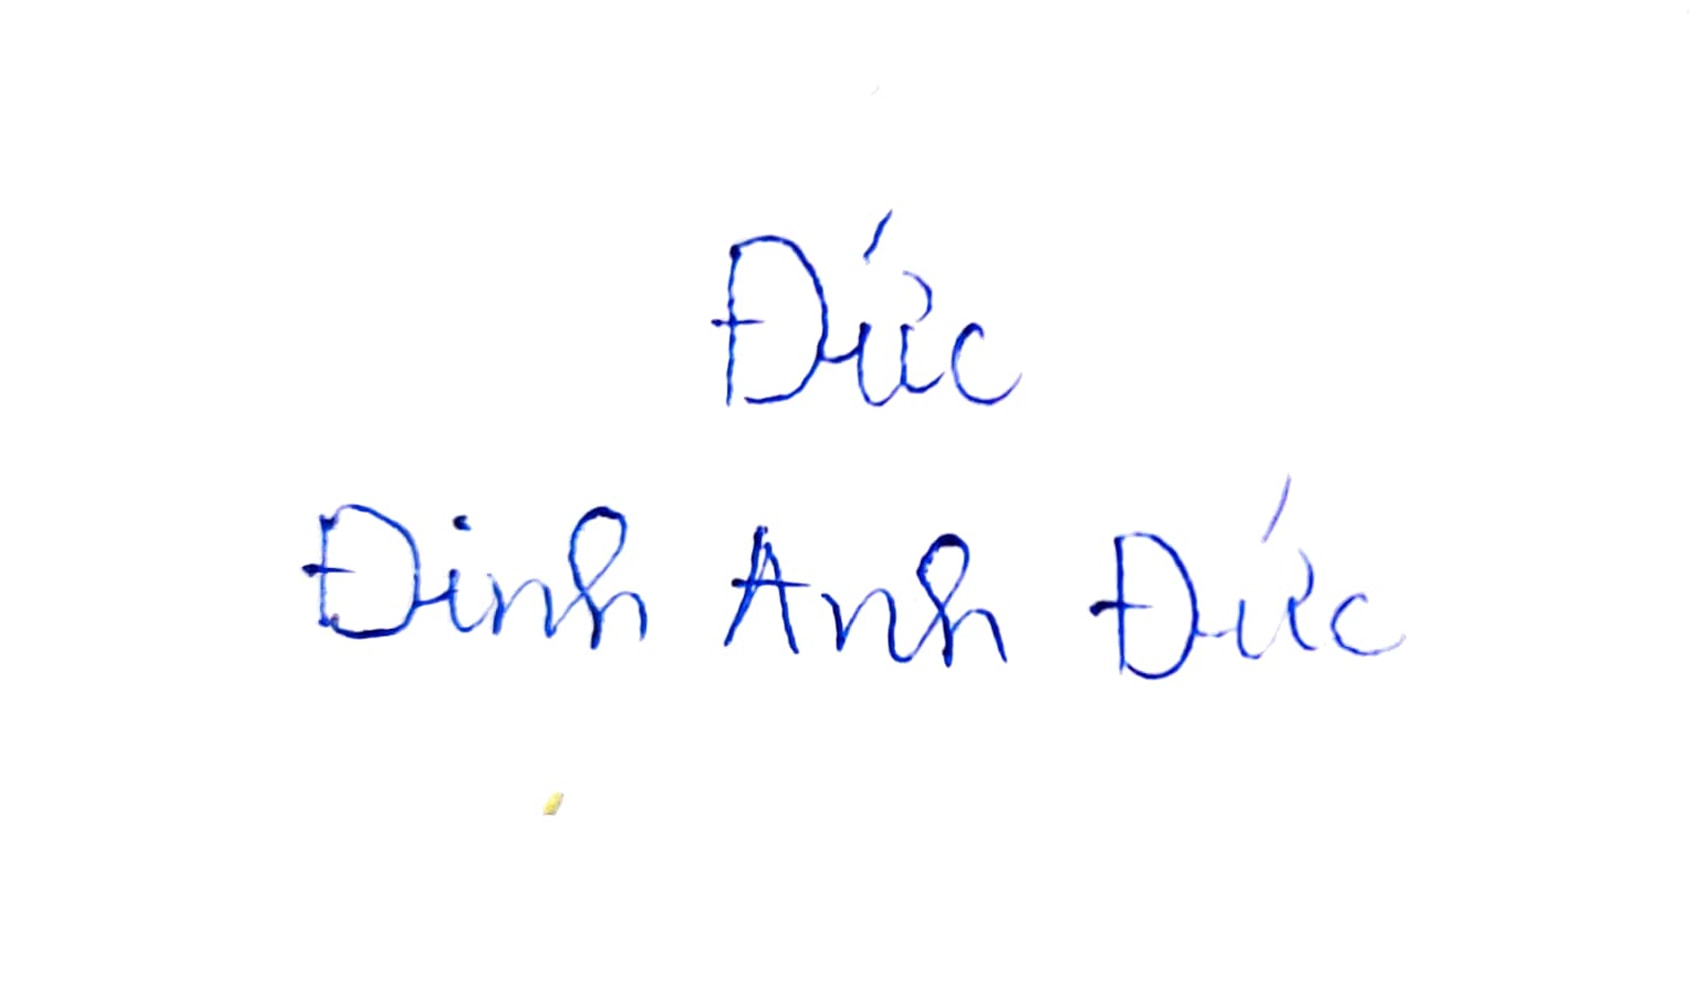 Đức
Đinh Anh Đức